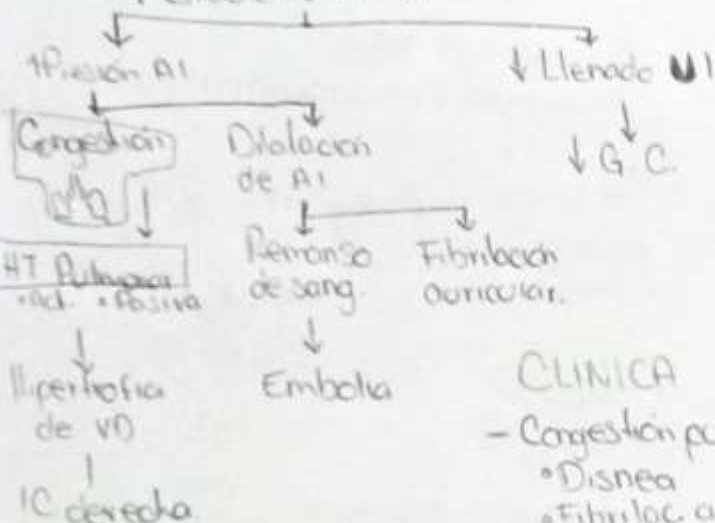 ↑Presión AI
↓ Llenado VI
Congestión
Dilatación
de AI
↓ G.C.
HT Pulmonar
•Act. •Pasiva
Remanso
de sang.
Fibrilación
auricular.
Hipertrofia
de VD
Embolia
IC derecha
CLINICA
- Congestión
•Disnea
•Fibrilac. a